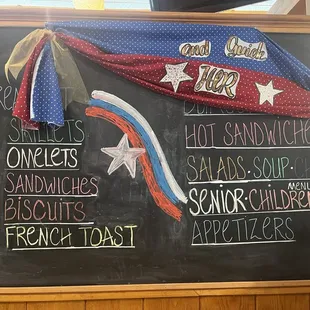 and Quick
HER
SKILLETS
ONELETS
SANDWICHES
BISCUITS
FRENCH TOAST
HOT SANDWICHE
SALADS·SOUP·C
SENIOR·CHILDREN
MENU
APPETIZERS